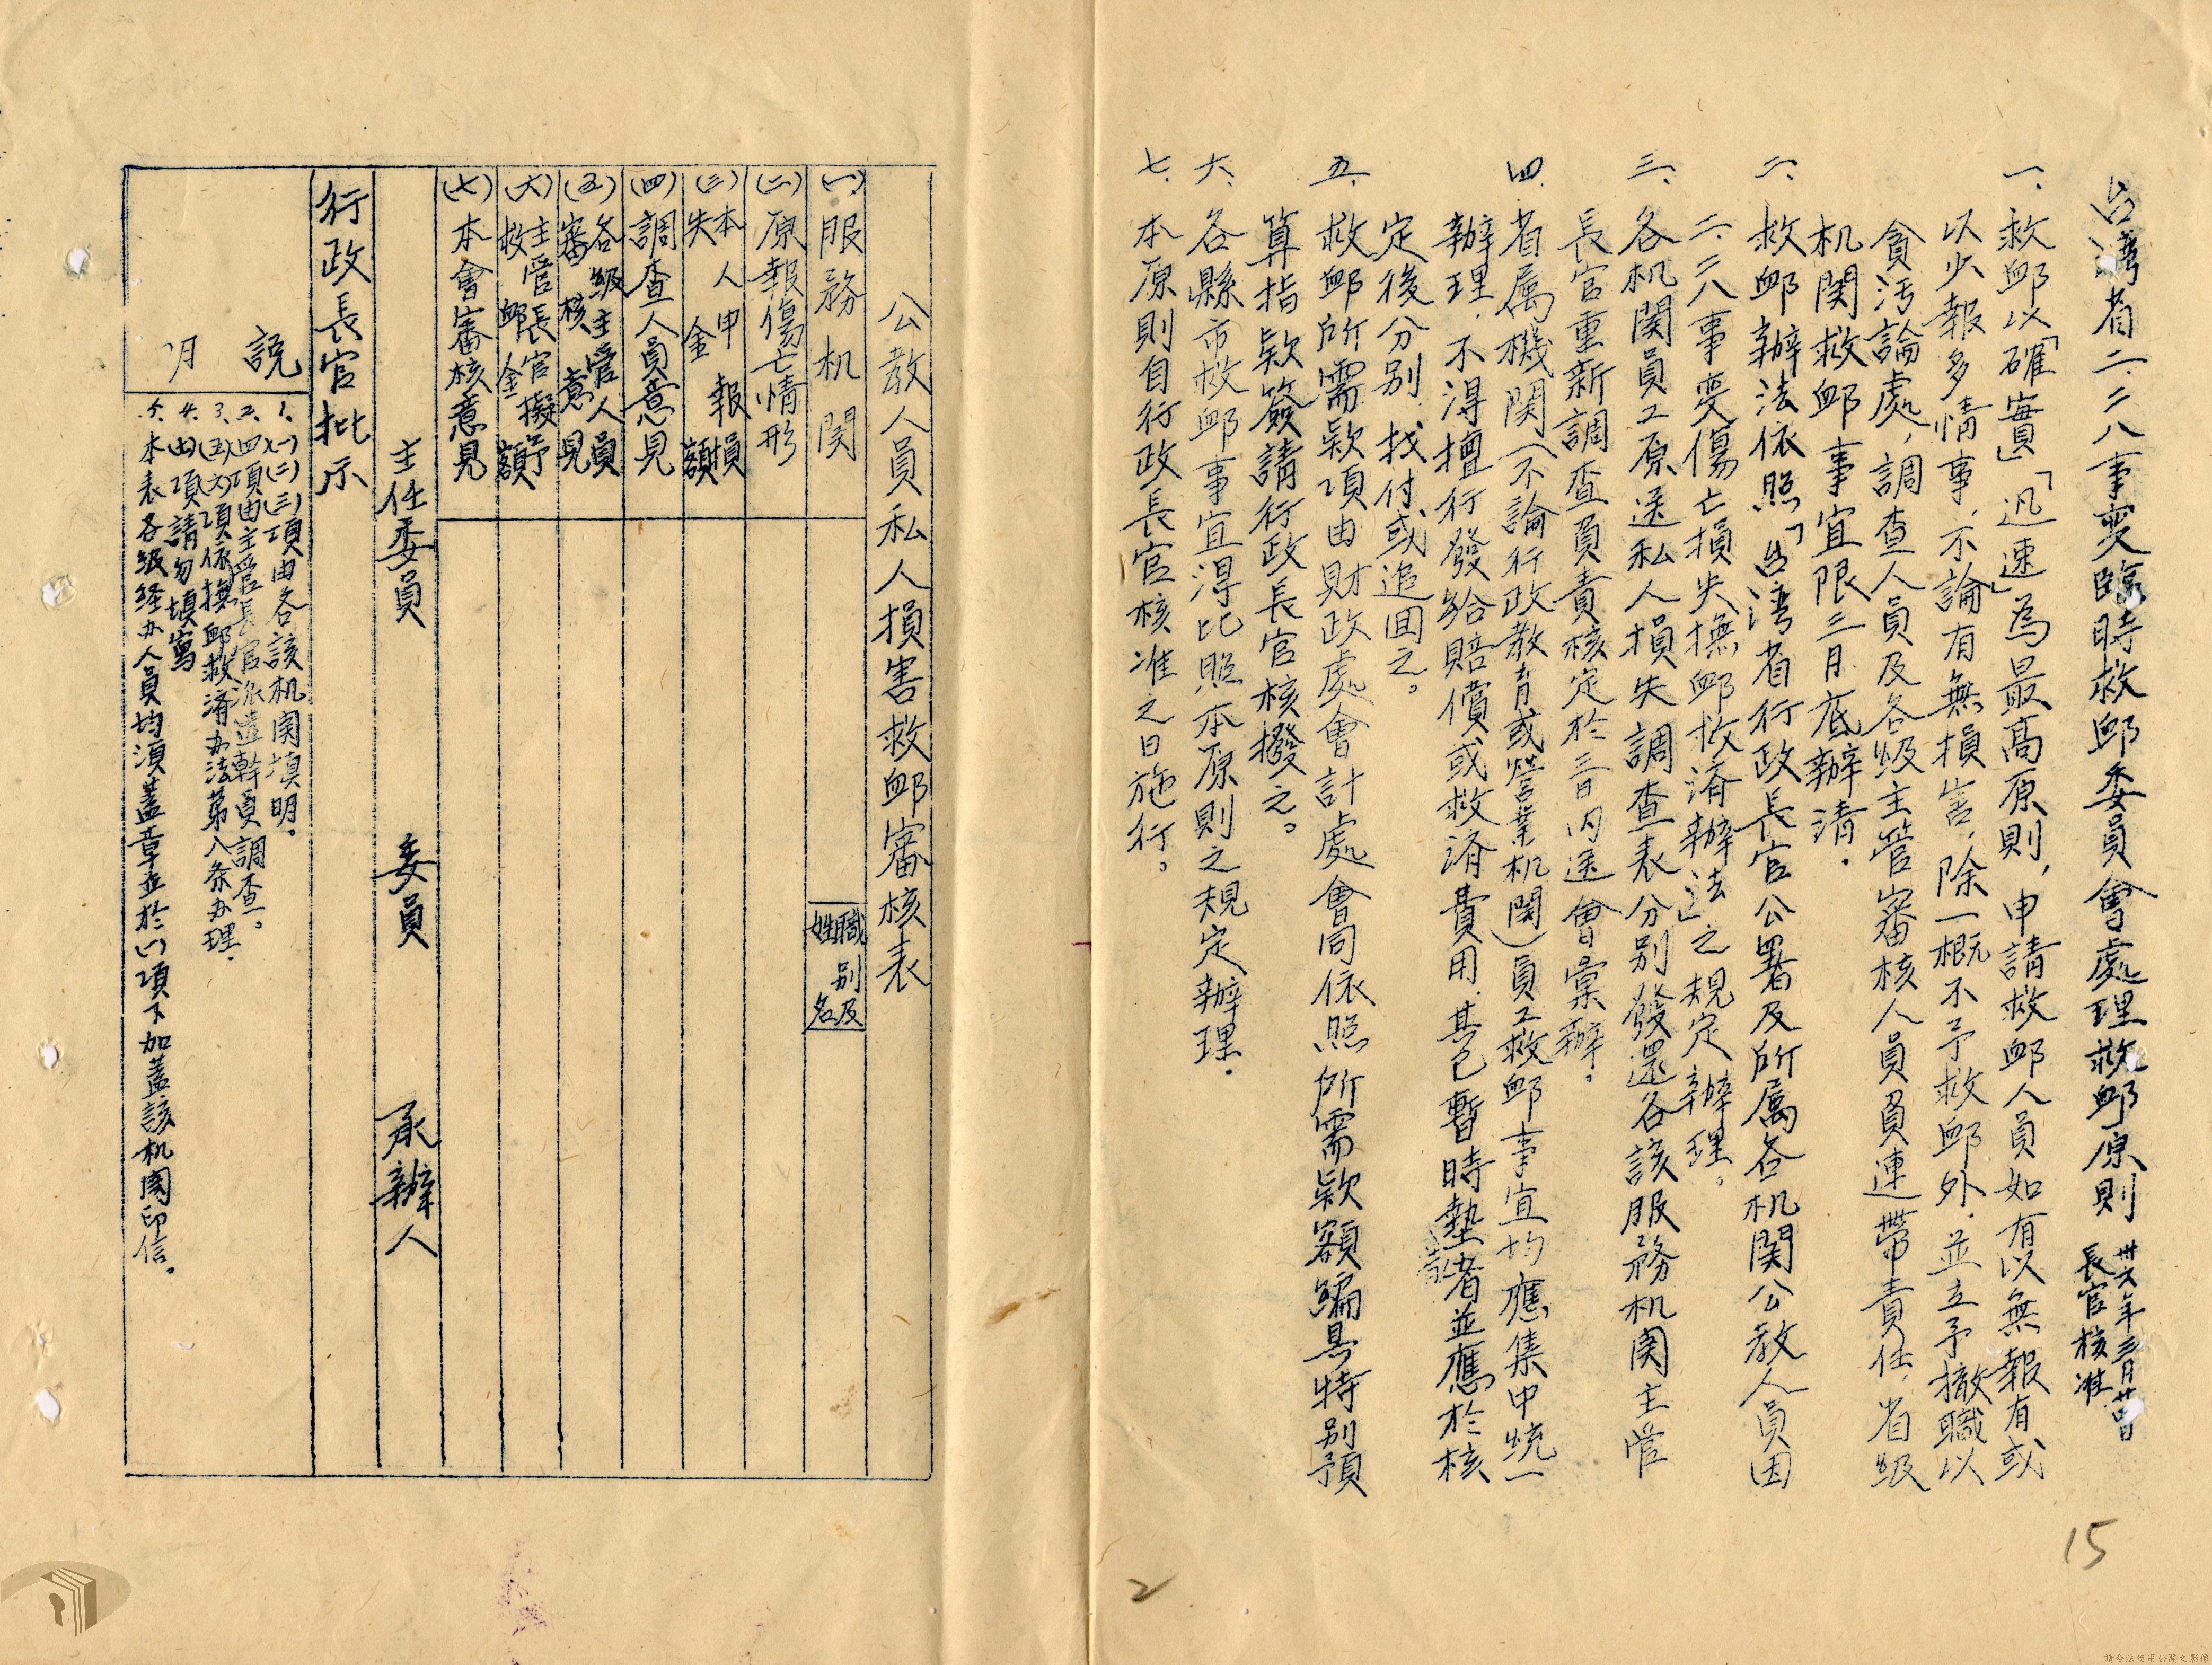 台湾省二.二八事変臨時救邮委員會處理救邮原則
卅六年三月廿四日
長官核准
一、救邮以「確實」「迅速」為最高原則，申請救邮人員如有以無報有或
以少報多情事，不論有無損害，除一概不予救邮外，並立予撤職以
貪污論處，調查人員及各級主管審核人員負連帶責任，省級
机関救邮事宜限三月底辦清。
二、救邮辦法依照「台湾省行政長官公署及所属各机関公教人員因
二.二八事变傷亡損失撫邮救済辦法」之規定辦理。
三、各机関員工原送私人損失調查表分别發還各該服務机関主管
長官重新調查負責核定於三日内送會彙辦。
四、省属機関（不論行政教育或營業机関）員工救邮事宜均應集中統一
辦理，不淂擅行發給賠償或救済費用，其已暫時墊者並應於核
定後分别找付或追回之。
五、救邮所需款項由財政處會計處會同依照所需款額編具特别預
算指款簽請行政長官核撥之。
六、各縣市救邮事宜淂比照本原則之規定辦理。
七、本原則自行政長官核准之日施行。
15
2
公教人員私人損害救邮審核表
(一)服務机関
職别及
姓名
(二)原報傷亡情形
(三)本人申報損
失金額
(四)調查人員意見
(五)各級主管人員
審核意見
(六)主管長官擬予
救邮金額
(七)本會審核意見
主任委員 委員 承辦人
行政長官批示
説明
1.(一)(二)(三)項由各該机関填明。
2.(四)項由主管長官派遣幹員調查。
3.(五)(六)項依撫邮救済办法第八条办理。
4.(七)項請勿填寫
5.本表各級経办人員均須蓋章並於(一)項下加蓋該机関印信。
請合法使用公開之影像